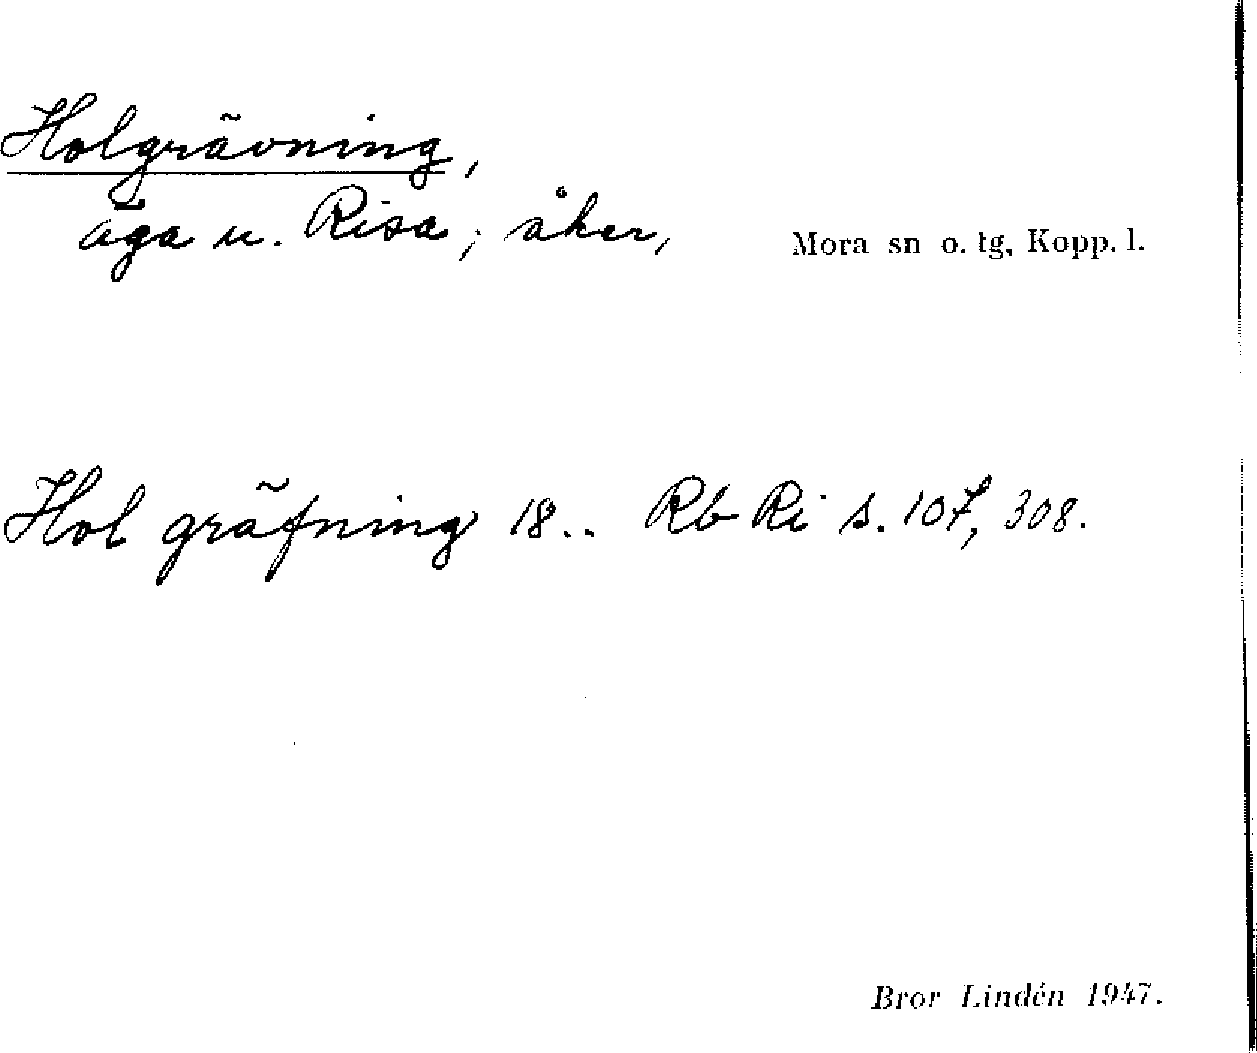 Holgrävning,
äga u. Risa; åker, Mora sn o. tg, Kopp. l.
Hol gräfning 18.. Rb Ri s. 107, 308.
Bror Lindén 1947.